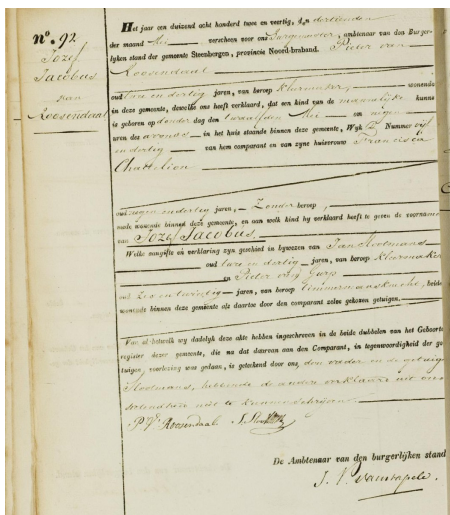 nº. 92
Jozef
Jacobus
van
Roosendaal
Het jaar een duizend acht honderd twee en veertig, den dertienden
der maand Mei verscheen voor ons Burgemeester, ambtenaar van den Burger-
lyken stand der gemeente Steenbergen, provincie Noord-braband. Pieter van
Roosendaal
oud twee en dertig jaren, van beroep kleermaker, wonende
in deze gemeente, dewelke ons heeft verklaard, dat een kind van de mannelyke kunne
is geboren op donderdag den twaalfden Mei om negen
uren des avonds in het huis staande binnen deze gemeente, Wyk Nummer vijf
en dertig van hem comparant en van zyne huisvrouw Francisca
Chattelion
oud negen en dertig jaren, Zonder beroep,
mede wonende binnen deze gemeente, en aan welk kind hy verklaard heeft te geven de voornamen
van Jozef Jacobus.
Welke aangifte en verklaring zyn geschied in bywezen van Jan Slootmans
oud twee en dertig jaren, van beroep kleermaker
en Pieter van Gurp
oud Zes en twintig jaren, van beroep timmermansknecht, beide
wonende binnen deze gemeente als daartoe door den comparant zelve gekozen getuigen.
Van al hetwelk wy dadelyk deze akte hebben ingeschreven in de beide dubbelen van het Geboorte
register dezer gemeente, die na dat daarvan aan den Comparant, in tegenwoordigheid der ge
tuigen, voorlezing was gedaan, is geteekend door ons, den vader en de getuige
Slootmans, hebbende de andere verklaard uit oor-
niet te kunnen schryven.
P V Roosendaal J. Slootmans
De Ambtenaar van den burgerlijken stand
J. V.